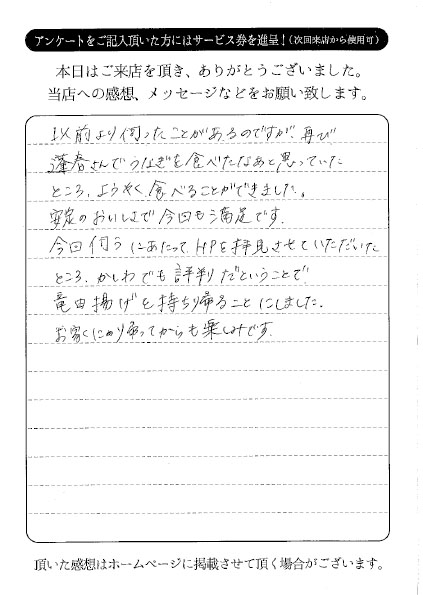 アンケートをご記入頂いた方にはサービス券を進呈！（次回来店から使用可）
本日はご来店を頂き、ありがとうございました。
当店への感想、メッセージなどをお願い致します。
以前より伺ったことがあるのですが、再び
蓬春さんでうなぎを食べたなあと思っていた
ところ、ようやく食べることができました。
安定のおいしさで今回も満足です。
今回伺うにあたって、HPを拝見させていただいた
ところ、かしわでも評判だということで
竜田揚げを持ち帰ることにしました。
帰ってからも楽しみです。
頂いた感想はホームページに掲載させて頂く場合がございます。